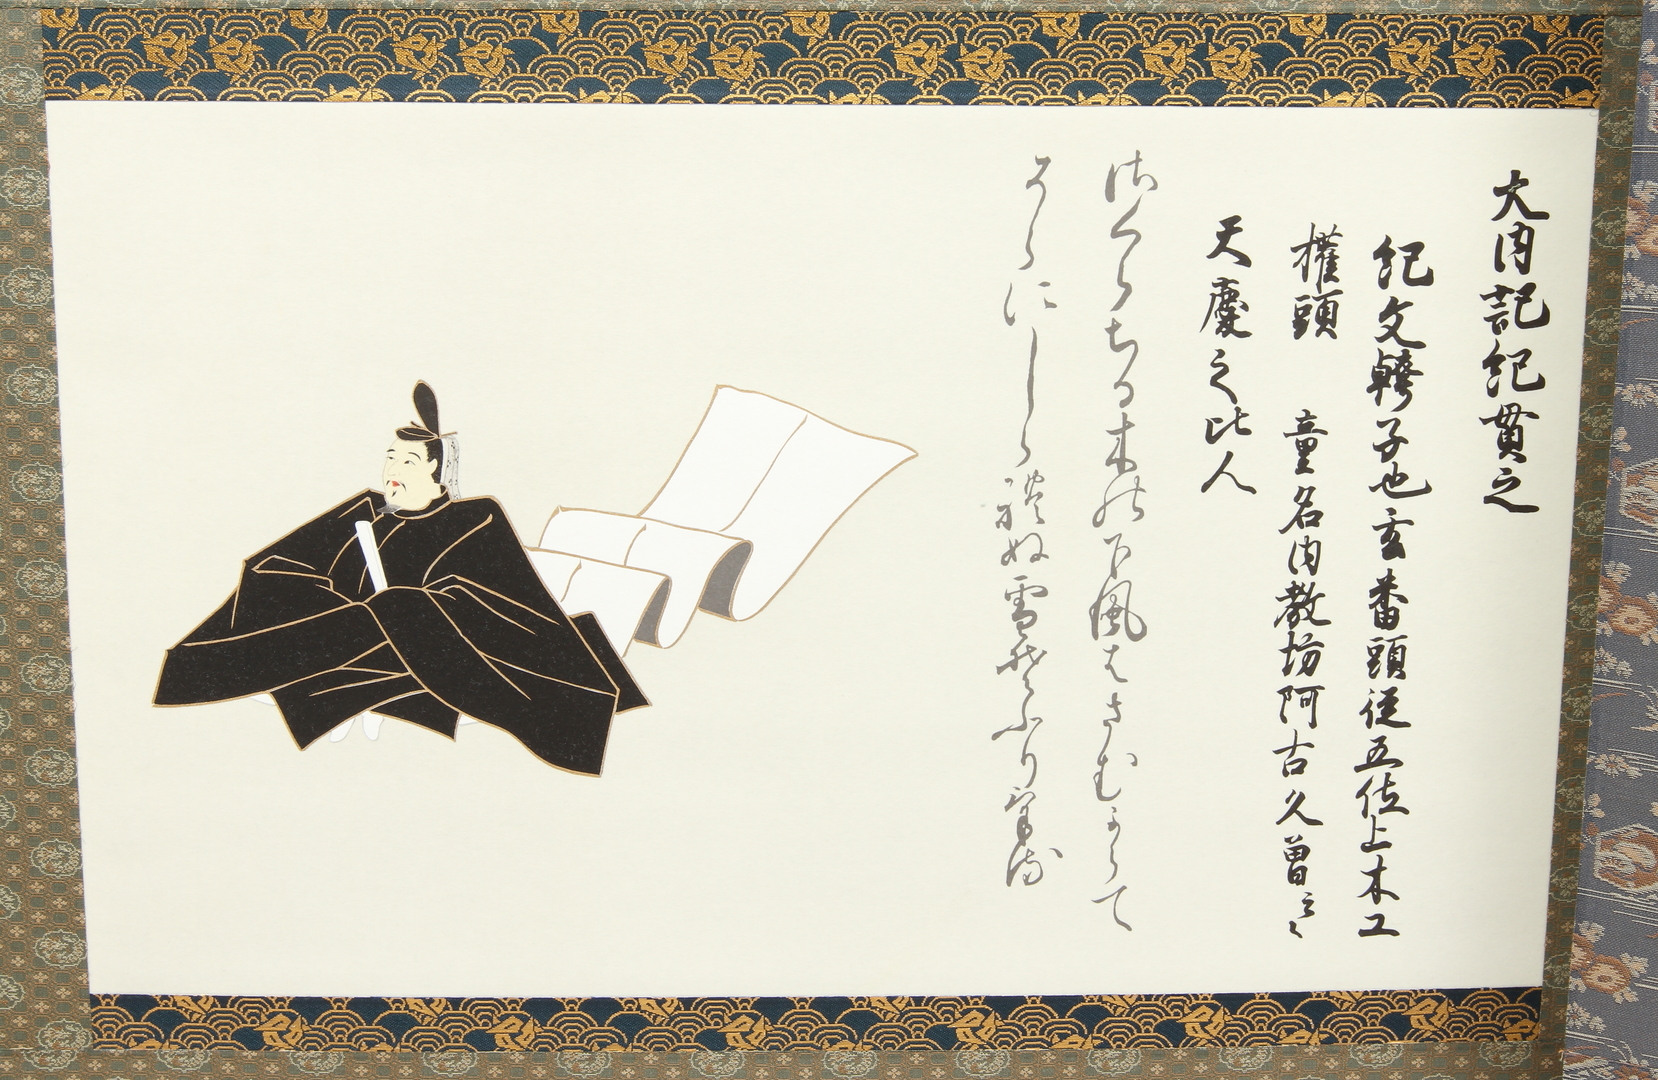 大内記紀貫之
紀文幹子也玄蕃頭従五位上木工
權頭　童名内教坊阿古久曽云々
天慶之比人
さくらちる木の下風はさむからて
そらにしられぬ雪そふりける